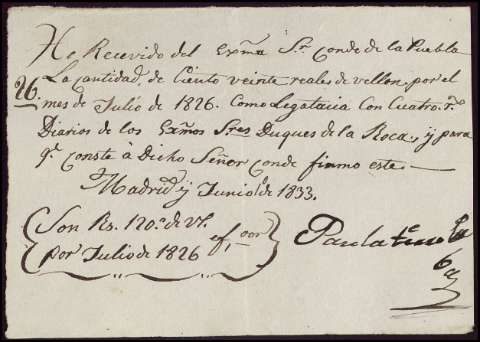 He Recevido del Exm̃o Sr. Conde de la Puebla
La cantidad, de Ciento veinte reales de vellon, por el
26. mes de Julio de 1826. Como Legataria Con Cuatro rs.
Diarios de los Exm̃os Sres Duques de la Roca, y para
qe. Conste à Dicho Señor Conde firmo este.
Madrid y Junio 1 de 1833.
Son Rs. 120.s de Vn.
por Julio de 1826
Paula